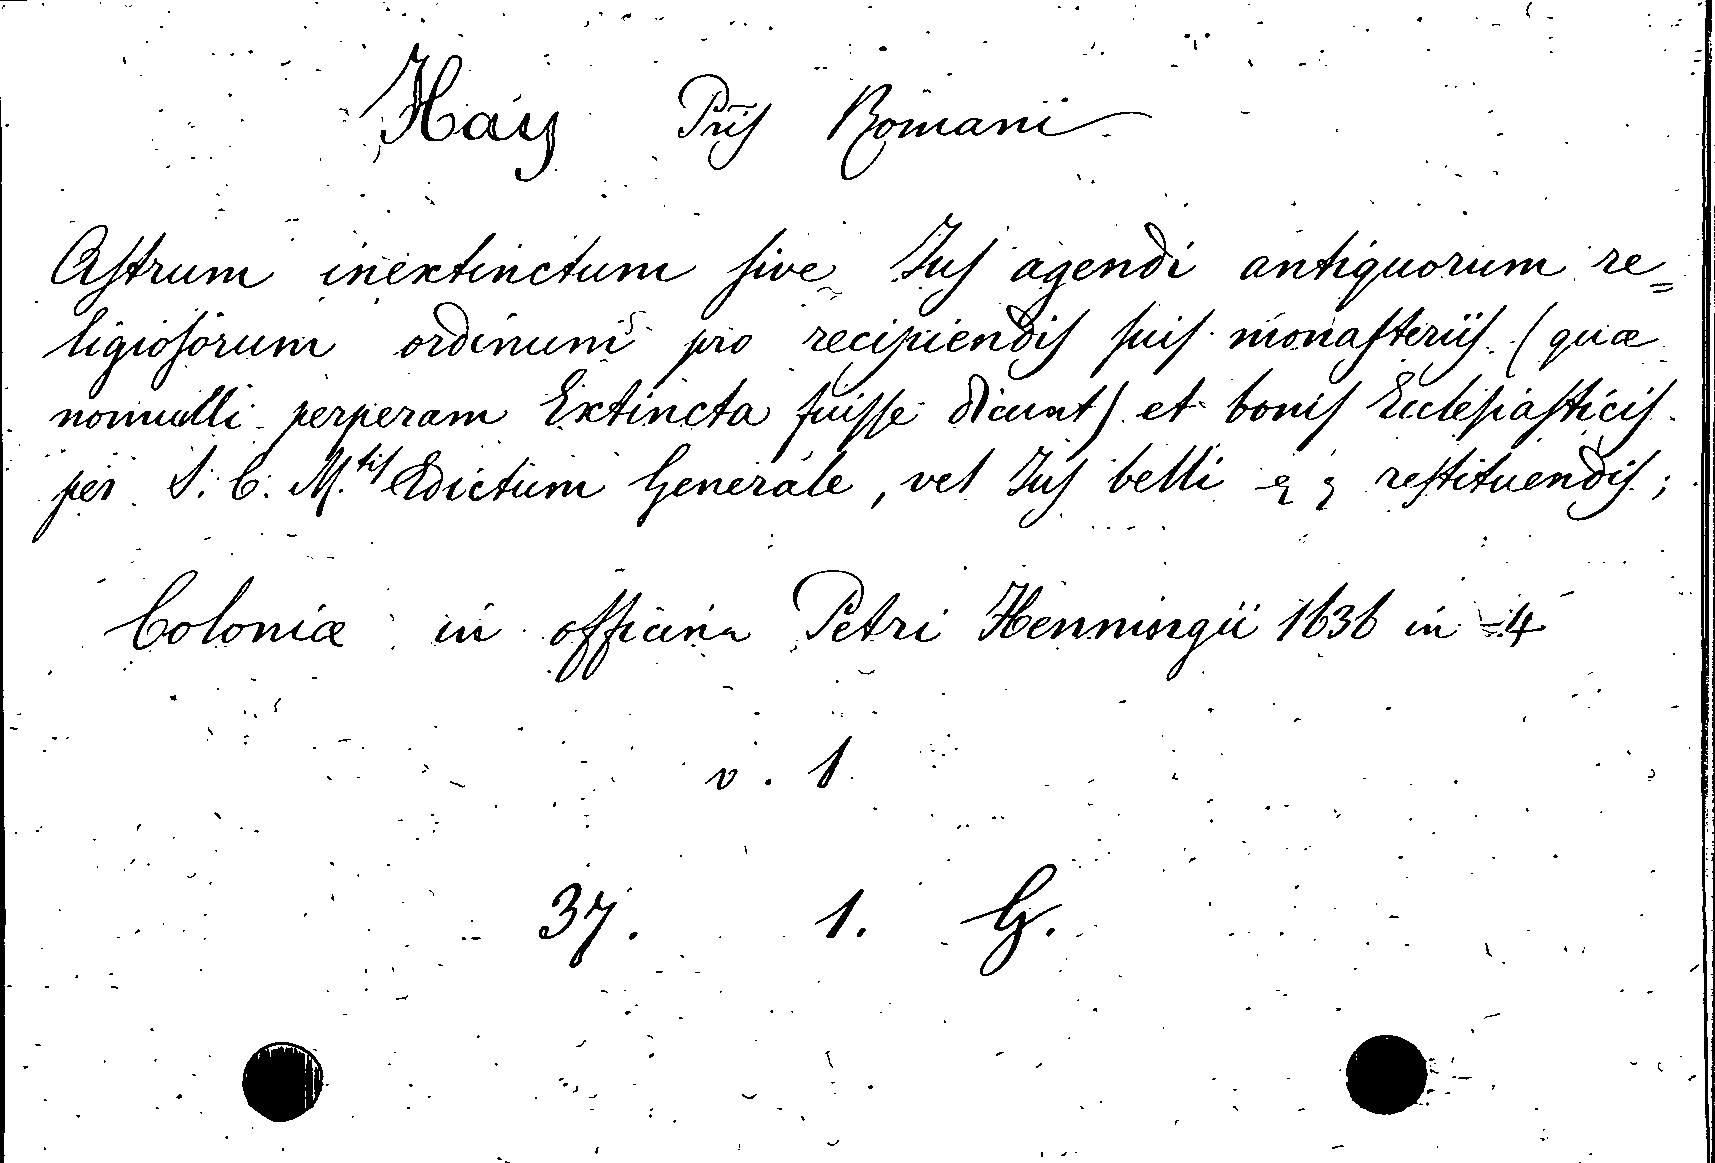 Hay Pris Romani
Astrum inextinctum sive Jus agendi antiquorum re=
ligiosorum ordinum pro recipiendis suis monasteriis (quæ
nonnulli perperam Extincta fuisse dicunt) et bonis Ecclesiasticis
per S. C. M.tis Edictum Generale, vel Jus belli restituendis;
Coloniæ in officina Petri Henningii 1636 in -4
v. 1
37. 1. G.